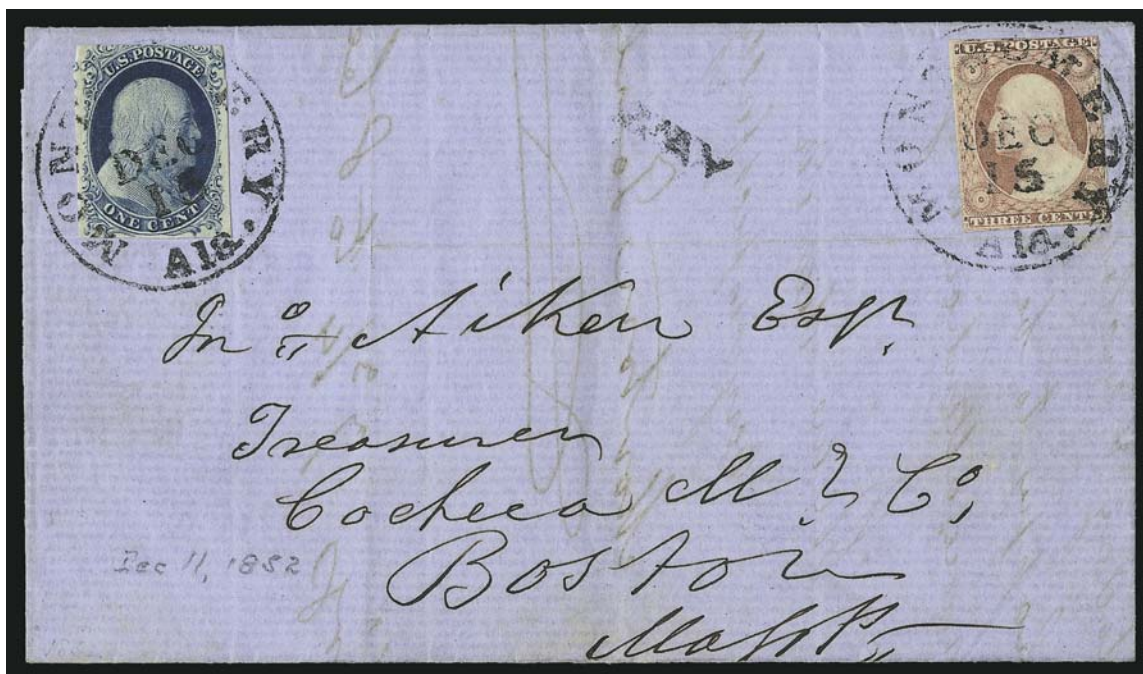 U.S. POSTAGE
ONE CENT
MONT ERY
DEC
15
Ala.
WAY
U.S. POSTAGE
THREE CENTS
MONTGOMERY
DEC
15
Ala.
Jno Aiken Esqr.
Treasurer
Cocheco M Co,
Boston
Masstts
Dec 11, 1852